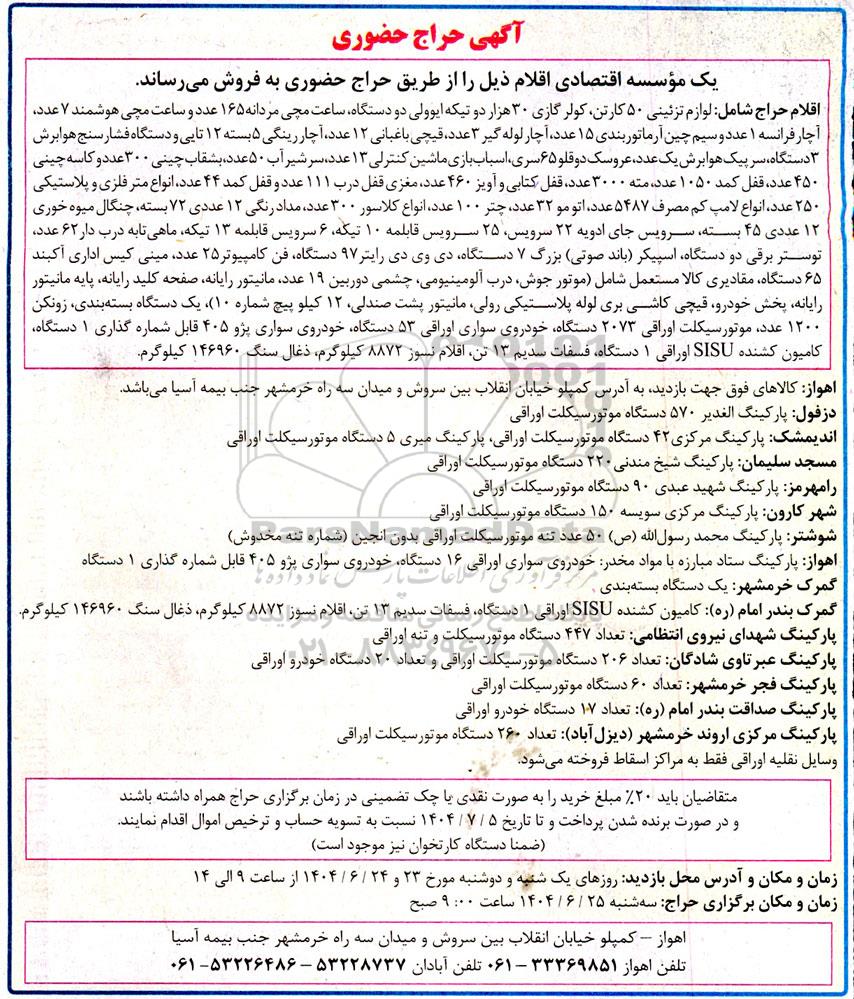 آگهی حراج حضوری
یک مؤسسه اقتصادی اقلام ذیل را از طریق حراج حضوری به فروش می‌رساند.
اقلام حراج شامل: لوازم تزئینی ۵۰ کارتن، کولر گازی ۳۰ هزار دو تیکه ایوولی دو دستگاه، ساعت مچی مردانه ۱۶۵ عدد و ساعت مچی هوشمند ۷ عدد،
آچار فرانسه ۱ عدد و سیم چین آرماتوربندی ۱۵ عدد، آچار لوله گیر ۳ عدد، قیچی باغبانی ۱۲ عدد، آچار رینگی ۵ بسته ۱۲ تایی و دستگاه فشار سنج هوابرش
۳ دستگاه، سر پیک هوابرش یک عدد، عروسک دوقلو ۶۵ سری، اسباب‌بازی ماشین کنترلی ۱۳ عدد، سر شیر آب ۵۰ عدد، بشقاب چینی ۳۰۰ عدد و کاسه چینی
۴۵۰ عدد، قفل کمد ۱۰۵۰ عدد، مته ۳۰۰۰ عدد، قفل کتابی و آویز ۴۶۰ عدد، مغزی قفل درب ۱۱۱ عدد و قفل کمد ۴۴ عدد، انواع متر فلزی و پلاستیکی
۲۵۰ عدد، انواع لامپ کم مصرف ۵۴۸۷ عدد، اتو مو ۳۲ عدد، چتر ۱۰۰ عدد، انواع کلاسور ۳۰۰ عدد، مداد رنگی ۱۲ عددی ۷۲ بسته، چنگال میوه خوری
۱۲ عددی ۴۵ بسته، سرویس جای ادویه ۲۲ سرویس، ۲۵ سرویس قابلمه ۱۰ تیکه، ۶ سرویس قابلمه ۱۳ تیکه، ماهی‌تابه درب دار ۶۲ عدد،
توستر برقی دو دستگاه، اسپیکر (باند صوتی) بزرگ ۷ دستگاه، دی وی دی رایتر ۹۷ دستگاه، فن کامپیوتر ۲۵ عدد، مینی کیس اداری آکبند
۶۵ دستگاه، مقادیری کالا مستعمل شامل (موتور جوش، درب آلومینیومی، چشمی دوربین ۱۹ عدد، مانیتور رایانه، صفحه کلید رایانه، پایه مانیتور
رایانه، پخش خودرو، قیچی کاشی بری لوله پلاستیکی رولی، مانیتور پشت صندلی، ۱۲ کیلو پیچ شماره ۱۰)، یک دستگاه بسته‌بندی، زونکن
۱۲۰۰ عدد، موتورسیکلت اوراقی ۲۰۷۳ دستگاه، خودروی سواری اوراقی ۵۳ دستگاه، خودروی سواری پژو ۴۰۵ قابل شماره گذاری ۱ دستگاه،
کامیون کشنده SISU اوراقی ۱ دستگاه، فسفات سدیم ۱۳ تن، اقلام نسوز ۸۸۷۲ کیلوگرم، ذغال سنگ ۱۴۶۹۶۰ کیلوگرم.
اهواز: کالاهای فوق جهت بازدید، به آدرس کمپلو خیابان انقلاب بین سروش و میدان سه راه خرمشهر جنب بیمه آسیا می‌باشد.
دزفول: پارکینگ الغدیر ۵۷۰ دستگاه موتورسیکلت اوراقی
اندیمشک: پارکینگ مرکزی ۴۲ دستگاه موتورسیکلت اوراقی، پارکینگ میری ۵ دستگاه موتورسیکلت اوراقی
مسجد سلیمان: پارکینگ شیخ مندنی ۲۲۰ دستگاه موتورسیکلت اوراقی
رامهرمز: پارکینگ شهید عبدی ۹۰ دستگاه موتورسیکلت اوراقی
شهر کارون: پارکینگ مرکزی سویسه ۱۵۰ دستگاه موتورسیکلت اوراقی
شوشتر: پارکینگ محمد رسول‌الله (ص) ۵۰ عدد تنه موتورسیکلت اوراقی بدون انجین (شماره تنه مخدوش)
اهواز: پارکینگ ستاد مبارزه با مواد مخدر: خودروی سواری اوراقی ۱۶ دستگاه، خودروی سواری پژو ۴۰۵ قابل شماره گذاری ۱ دستگاه
گمرک خرمشهر: یک دستگاه بسته‌بندی
گمرک بندر امام (ره): کامیون کشنده SISU اوراقی ۱ دستگاه، فسفات سدیم ۱۳ تن، اقلام نسوز ۸۸۷۲ کیلوگرم، ذغال سنگ ۱۴۶۹۶۰ کیلوگرم.
پارکینگ شهدای نیروی انتظامی: تعداد ۴۴۷ دستگاه موتورسیکلت و تنه اوراقی
پارکینگ عبرتاوی شادگان: تعداد ۲۰۶ دستگاه موتورسیکلت اوراقی و تعداد ۲۰ دستگاه خودرو اوراقی
پارکینگ فجر خرمشهر: تعداد ۶۰ دستگاه موتورسیکلت اوراقی
پارکینگ صداقت بندر امام (ره): تعداد ۱۷ دستگاه خودرو اوراقی
پارکینگ مرکزی اروند خرمشهر (دیزل‌آباد): تعداد ۲۶۰ دستگاه موتورسیکلت اوراقی
وسایل نقلیه اوراقی فقط به مراکز اسقاط فروخته می‌شود.
متقاضیان باید ۲۰٪ مبلغ خرید را به صورت نقدی یا چک تضمینی در زمان برگزاری حراج همراه داشته باشند
و در صورت برنده شدن پرداخت و تا تاریخ ۵ / ۷ / ۱۴۰۴ نسبت به تسویه حساب و ترخیص اموال اقدام نمایند.
(ضمنا دستگاه کارتخوان نیز موجود است)
زمان و مکان و آدرس محل بازدید: روزهای یک شنبه و دوشنبه مورخ ۲۳ و ۲۴ / ۶ / ۱۴۰۴ از ساعت ۹ الی ۱۴
زمان و مکان برگزاری حراج: سه‌شنبه ۲۵ / ۶ / ۱۴۰۴ ساعت ۹:۰۰ صبح
اهواز – کمپلو خیابان انقلاب بین سروش و میدان سه راه خرمشهر جنب بیمه آسیا
تلفن اهواز ۳۳۳۶۹۸۵۱ – ۰۶۱ تلفن آبادان ۵۳۲۲۸۷۳۷ – ۵۳۲۲۶۴۸۶ – ۰۶۱
ParsNamadData
مرکز فرآوری اطلاعات پارس نماد داده‌ها
۰۲۱-۸۸۳۴۹۶۷۰-۵